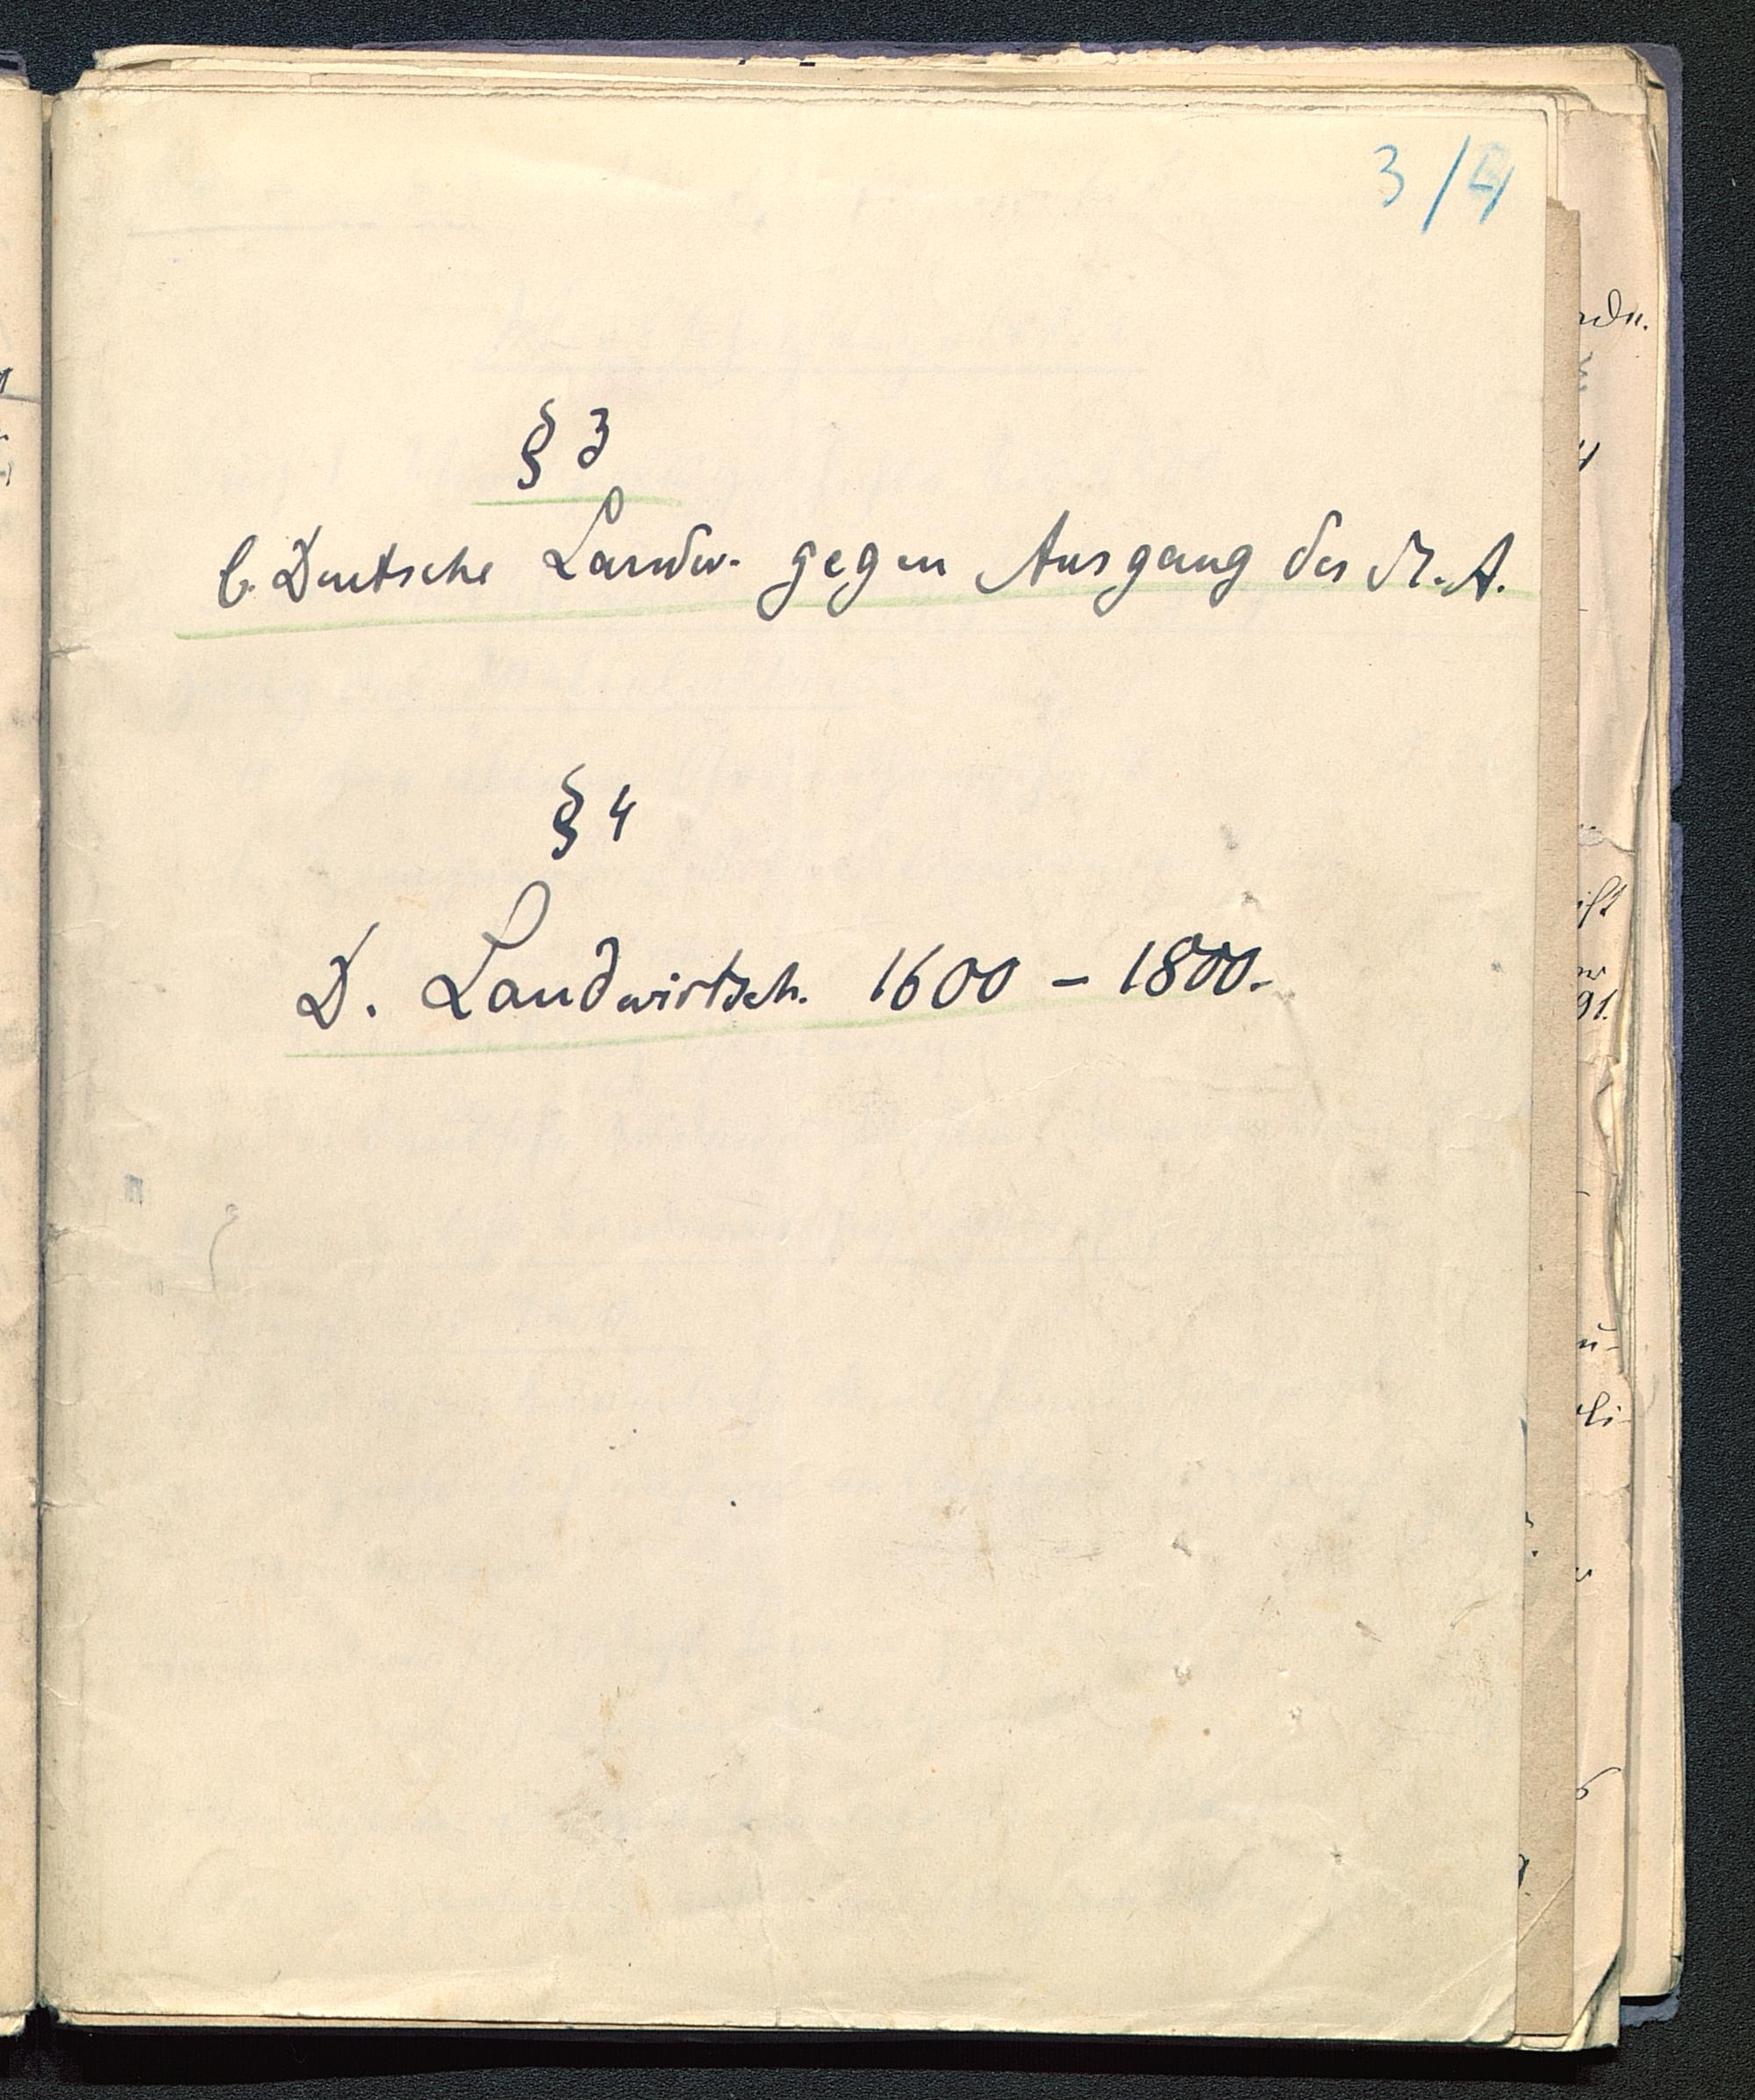 3/4
§ 3
b. Deutsche Landw. gegen Ausgang des M.A.
§ 4
D. Landwirtsch. 1600 – 1800.